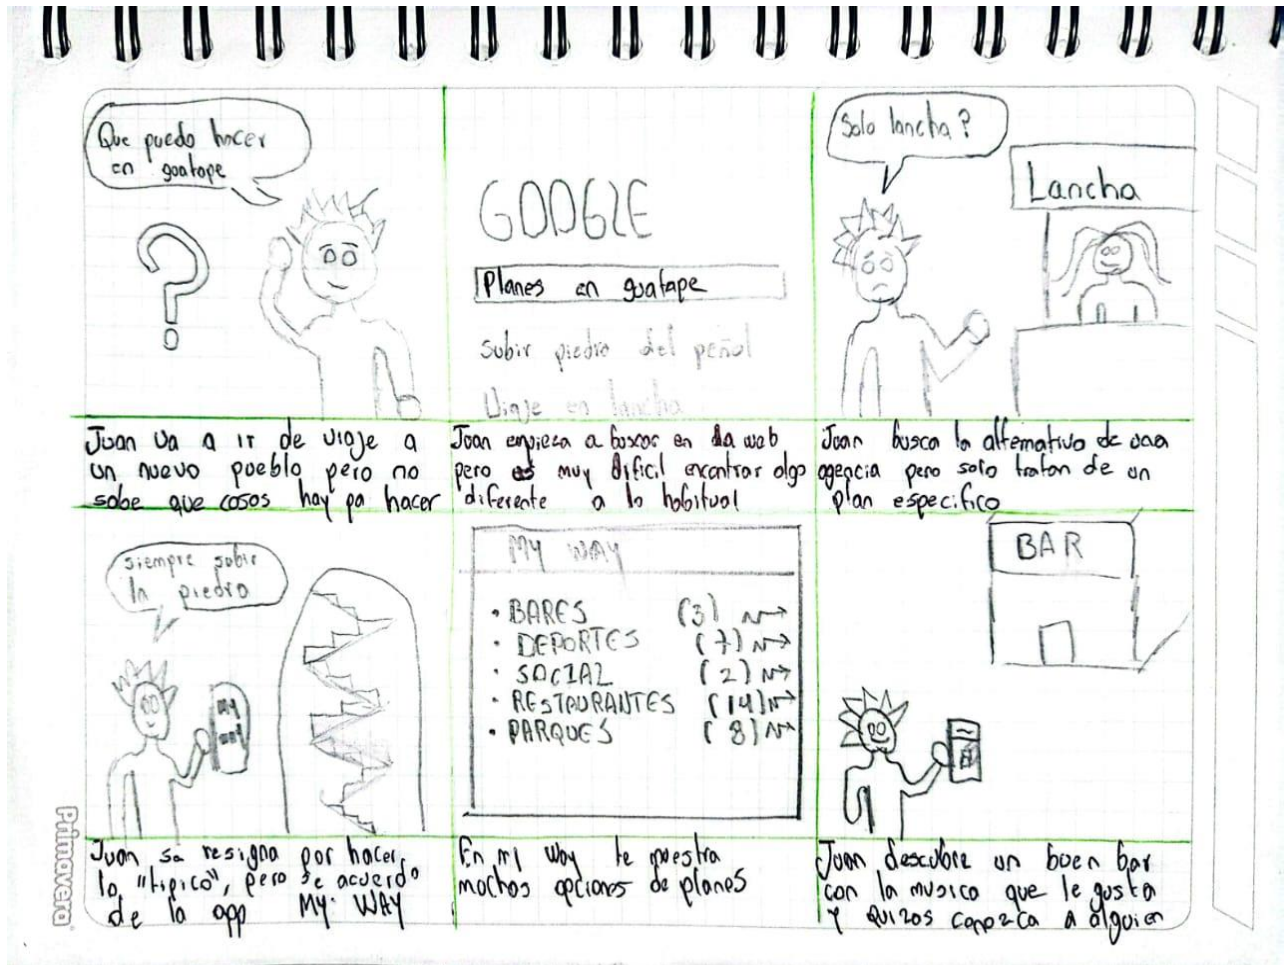 Que puedo hacer
en guatape
Juan va a ir de viaje a
un nuevo pueblo pero no
sabe que cosas hay pa hacer
GOOGLE
Planes en guatape
subir piedra del peñol
Viaje en lancha
Juan empieza a buscar en la web
pero es muy dificil encontrar algo
diferente a lo habitual
Solo lancha?
Lancha
Juan busca la alternativa de una
agencia pero solo tratan de un
plan especifico
siempre subir
la piedra
MY
WAY
Juan se resigna por hacer
lo "tipico", pero se acuerda
de la app MY WAY
MY WAY
• BARES (3)
• DEPORTES (7)
• SOCIAL (2)
• RESTAURANTES (14)
• PARQUES (8)
En mi way te muestra
muchas opciones de planes
BAR
Juan descubre un buen bar
con la musica que le gusta
y quizas conozca a alguien
Primavera